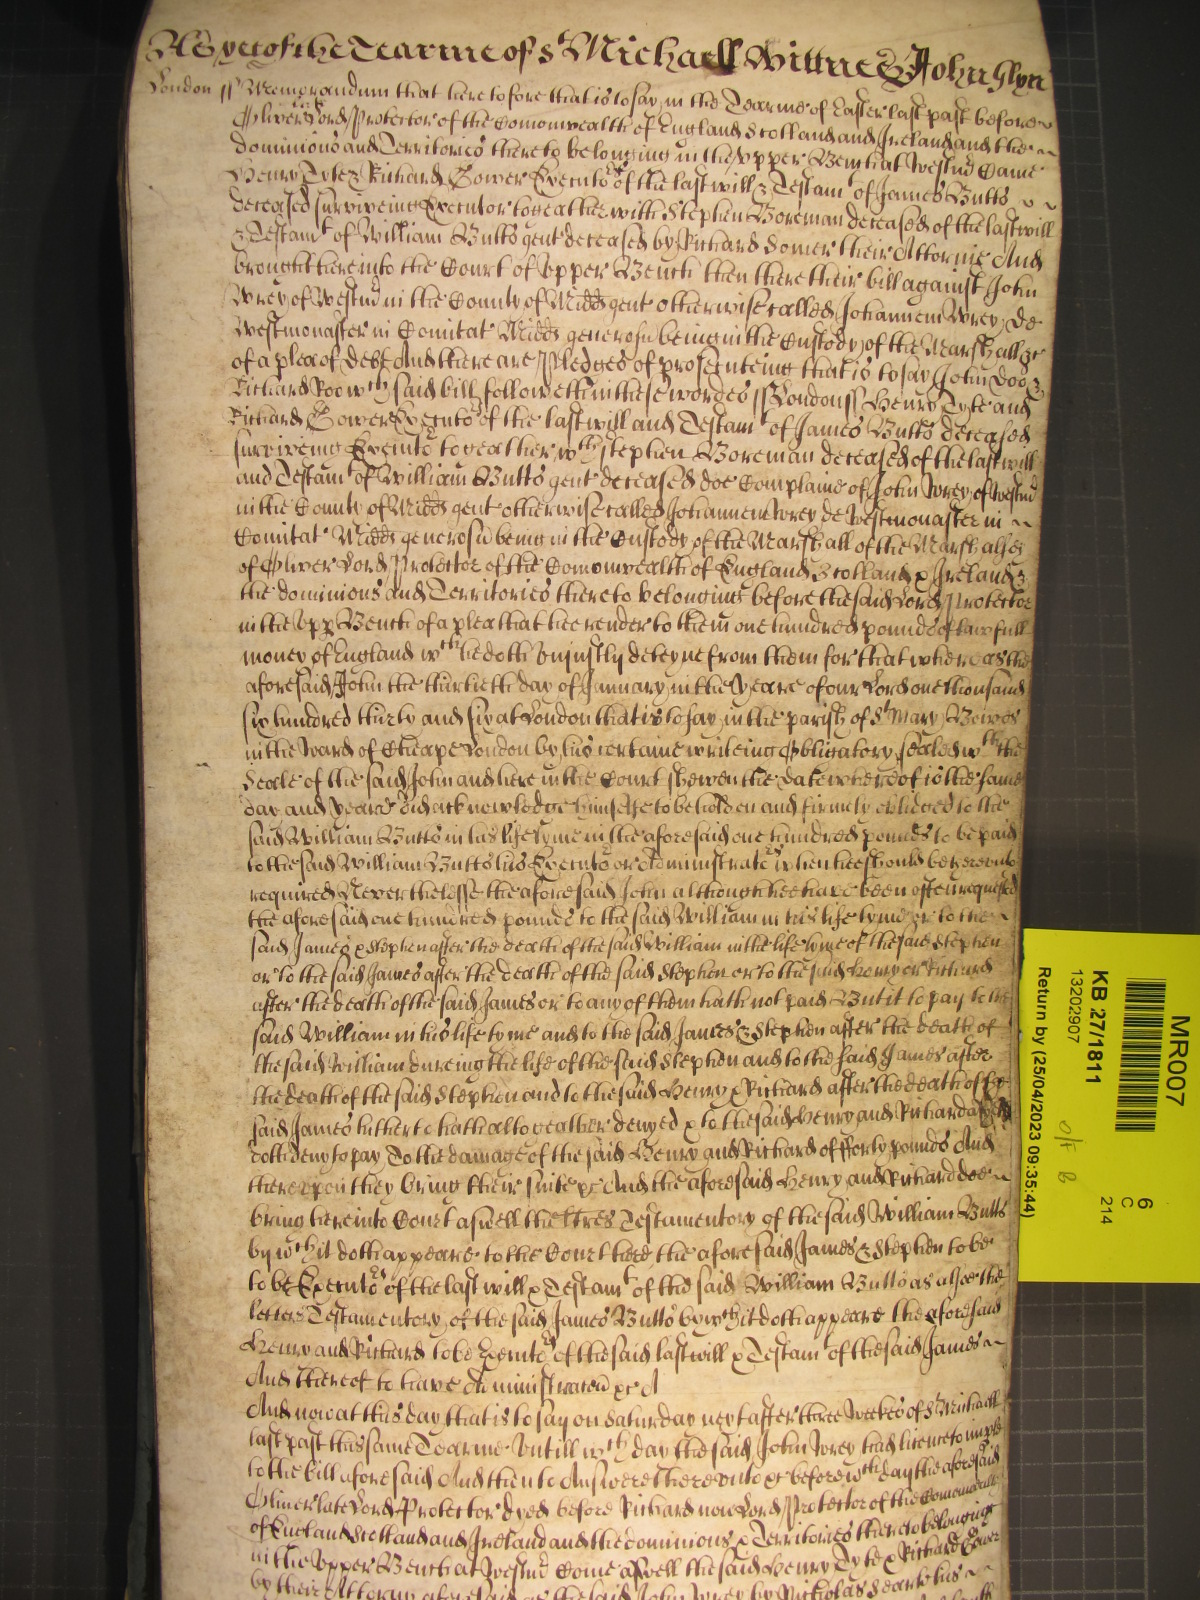 As yet of the Tearme of St Michaell Wittnes John Glyn
London ss Memorandum that heretofore that is to say in the Tearme of Easter last past before
Oliver Lord Protector of the Comonwealth of England Scotland and Ireland and the
dominions and Territories thereto belonging in the upper Bench at Westmr Came
Henry Tyte & Richard Gower Executors of the last will & Testamt of James Butts
deceased surviveing Executor togeather with Stephen Boreman deceased of the last will
& Testamt of William Butts gent deceased by Richard Somer their Attornie And
brought here into the Court of Upper Bench then there their bill against John
Wrey of Westmr in the County of Midds gent otherwise called Johannem Wrey de
Westmonaster in Comitat Midds generosu being in the Custody of the Marshall &c
of a plea of debt And there are Pledges of prosecuteing that is to say John Doo &
Richard Roo wch said bill followeth in these wordes ss London ss Henry Tyte and
Richard Gower Executors of the last will and Testamt of James Butts deceased
surviveing Executor togeather wth Stephen Boreman deceased of the last will
and Testamt of William Butts gent deceased doe Complaine of John Wrey of Westmr
in the County of Midds gent otherwise called Johannem Wrey de Westmonaster in
Comitat Midds generosu being in the Custody of the Marshall of the Marshalsey
of Oliver Lord Protector of the Comonwealth of England Scotland & Ireland &
the dominions and Territories thereto belonging before the said Lord Protector
in the Upp Bench of a plea that hee render to them one hundred pounds of lawfull
money of England wch he doth unjustly deteyne from them for that whereas the
aforesaid John the thirtieth day of January in the yeare of our Lord one thousand
six hundred thirty and six at London that is to say in the parish of St Mary Bowes
in the Ward of Cheape London by his certaine writeing Obligatory sealed wth the
Seale of the said John and here in the Court shewen the date whereof is the same
day and yeare did acknowledge himselfe to be holden and firmely obliged to the
said William Butts in his life tyme in the aforesaid one hundred pounds to be paid
to the said William Butts his Executors or Administrators when hee should be thereunto
required Neverthelesse the aforesaid John although hee have been often requested
the aforesaid one hundred pounds to the said William in his life tyme or to the
said James & Stephen after the death of the said William in the life tyme of the said Stephen
or to the said James after the death of the said Stephen or to the said Henry or Richard
after the death of the said James or to any of them hath not paid But it to pay to the
said William in his life tyme and to the said James & Stephen after the death of
the said William dureing the life of the said Stephen and to the said James after
the death of the said Stephen and to the said Henry & Richard after the death of the
said James hitherto hath altogeather denyed & to the said Henry and Richard
doth deny to pay To the damage of the said Henry and Richard of fforty pounds And
thereupon they bring their suite &c And the aforesaid Henry and Richard doe
bring here into Court aswell the lres Testamentory of the said William Butts
by wch it doth appeare to the Court here the aforesaid James & Stephen to be
to be Executors of the last will & Testamt of the said William Butts as alsoe the
letters Testamentory of the said James Butts by wch it doth appeare the aforesaid
Henry and Richard to be Executors of the said last will & Testamt of the said James
And thereof to have Administracon &c
And now at this day that is to say on Saturday next after three Weekes of St Michaell
last past this same Tearme Untill wch day the said John Wrey had licence to imple
to the bill aforesaid And then to Answere thereunto &c before wch day the aforesaid
Oliver late Lord Protector dyed before Richard now Lord Protector of the Comonwealth
of England Scotland and Ireland and the dominions & Territories thereto belonging
in the Upper Bench at Westmr Come aswell the said Henry Tyte & Richard Gower
by there Attorny aforesaid as the said John Wrey by Nicholas Searle his
MR007
KB 27/1811
13202907
Return by (25/04/2023 09:35:44)
6
C
214
o/s B